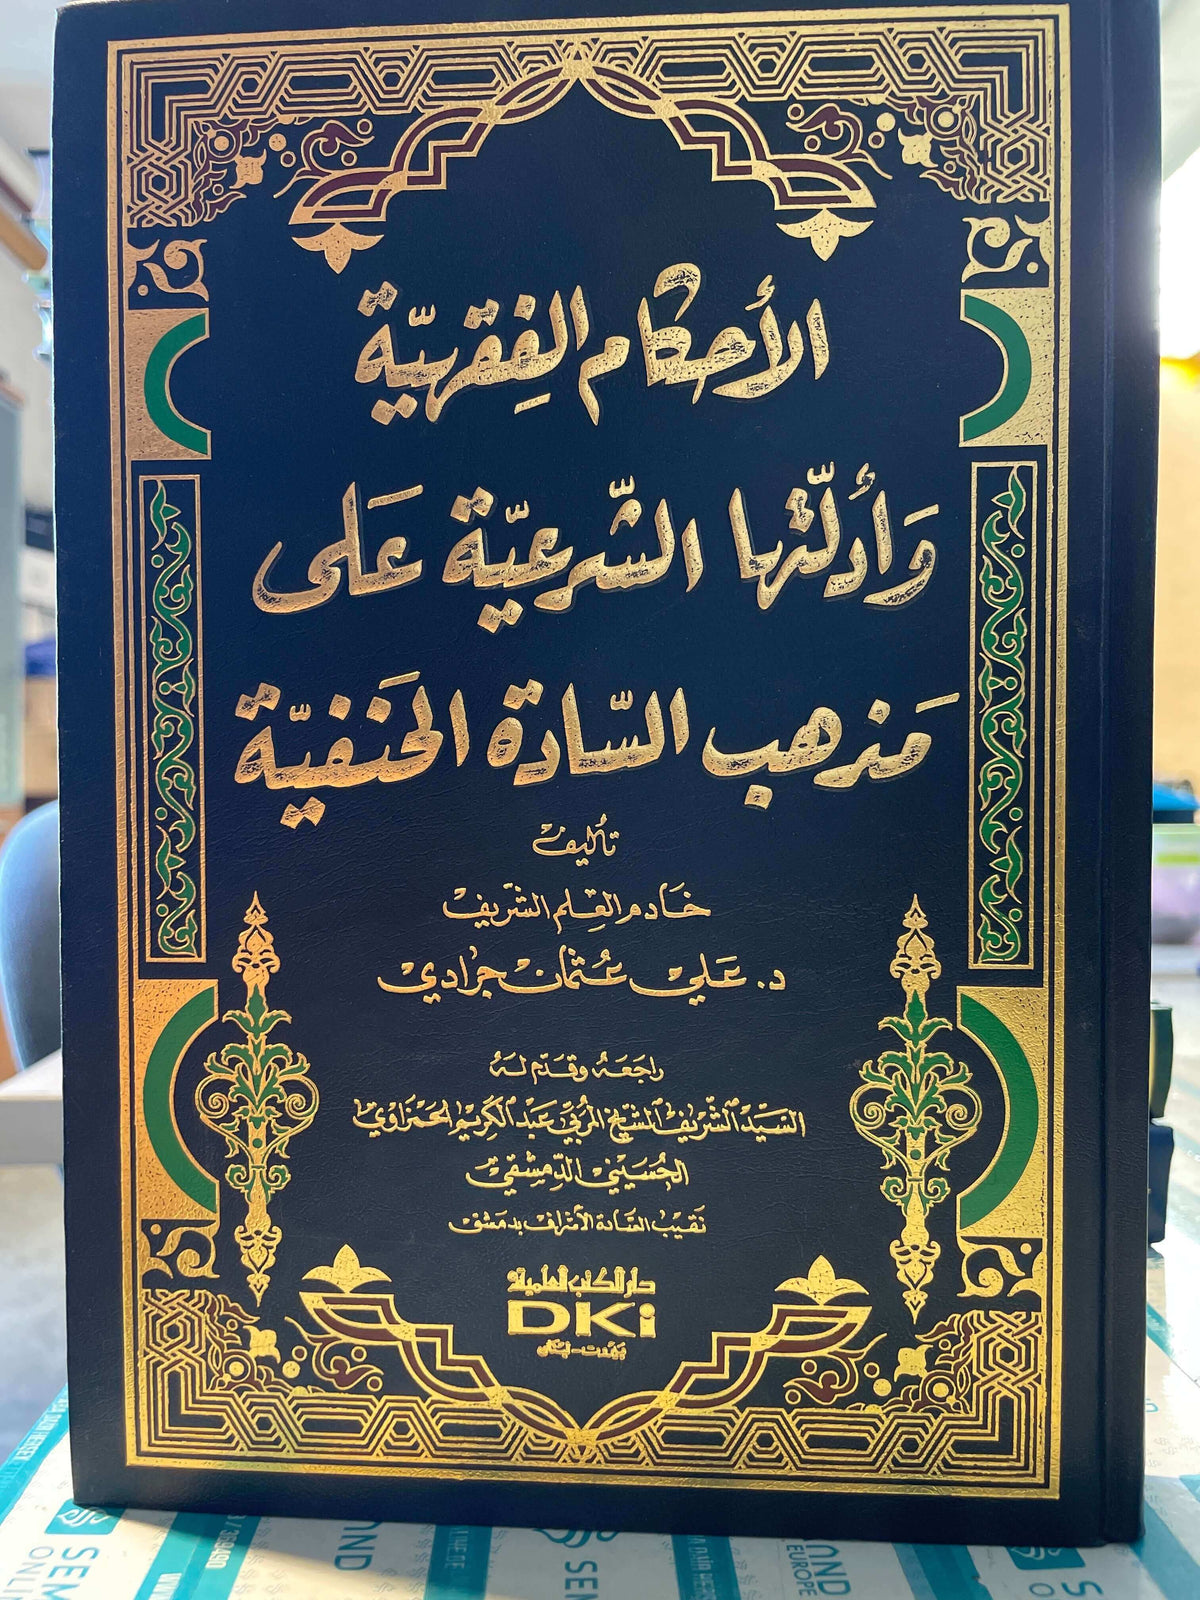 الأحكام الفقهيّة
وَأدلّتها الشّرعيّة عَلى
مَذهب السّادة الحَنَفيّة
تأليف
خَادم العِلم الشّريف
د. عَلي عُثمان جرادي
راجَعَهُ وقدّم لَهُ
السَيّد الشّريف الشيخ المُربّي عَبد الكَريم الحَمزاوي
الحُسَيني الدّمشقي
نقيب السّادة الأشراف بدمشق
دار الكتب العلمية
DKi
بيروت - لبنان
SEM
ONLIN
369490
OND
SEN
OND
EUROPE